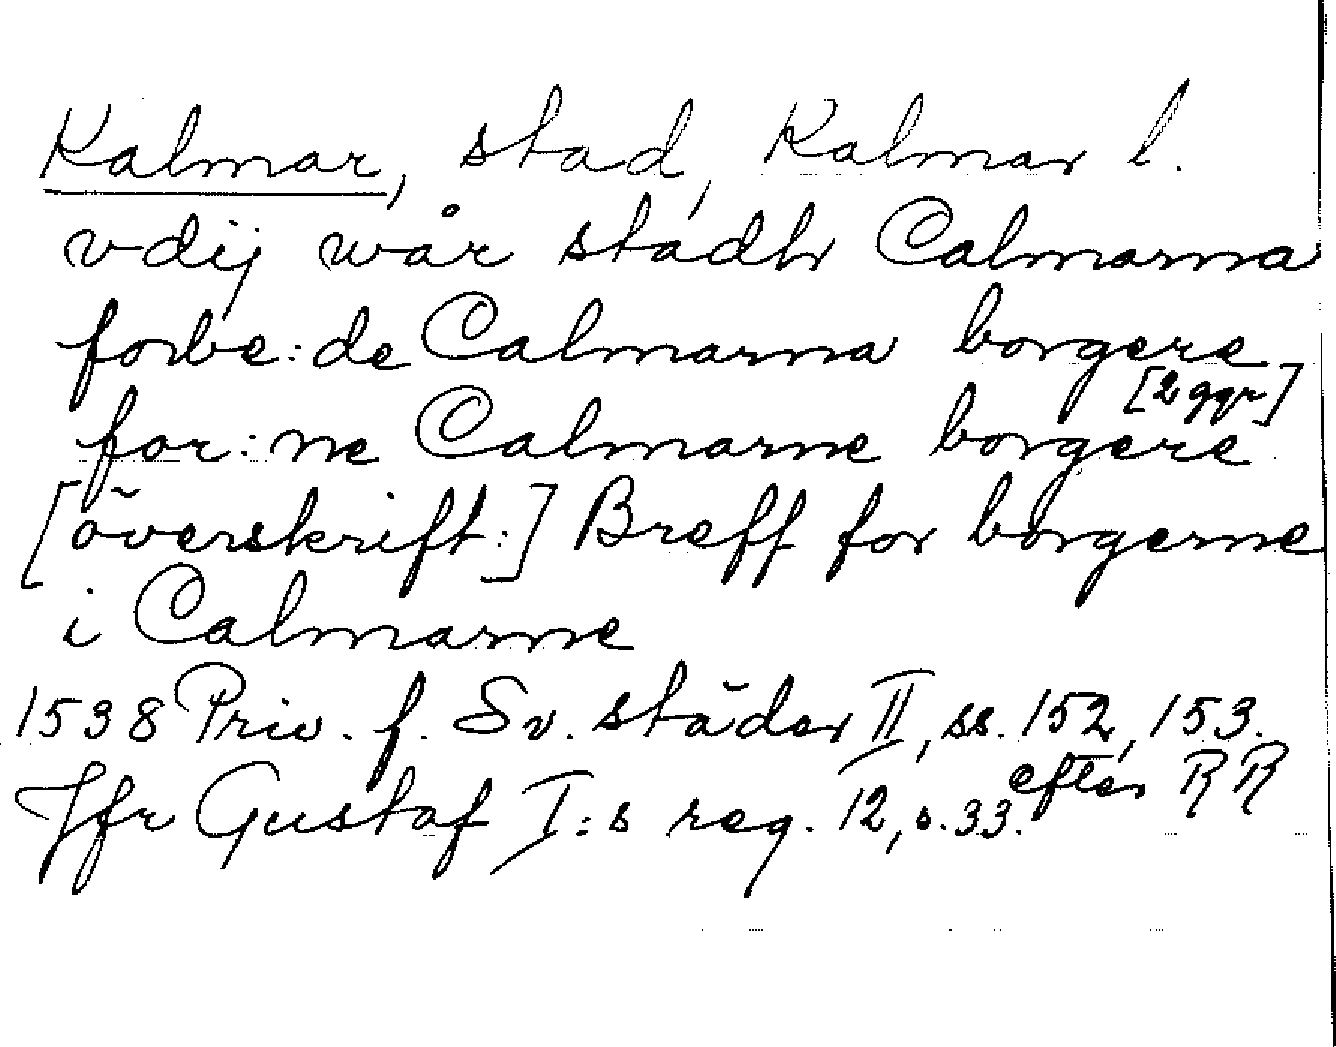 Kalmar, stad, Kalmar l.
vdij wår stadh Calmarna
forbe:de Calmarna borgere
for:ne Calmarne borgere [2 ggr]
[överskrift:] Breff for borgerne
i Calmarne
1538 Priv. f. Sv. städer II, ss. 152, 153.
efter RR
Jfr Gustaf I:s reg. 12, s. 33.